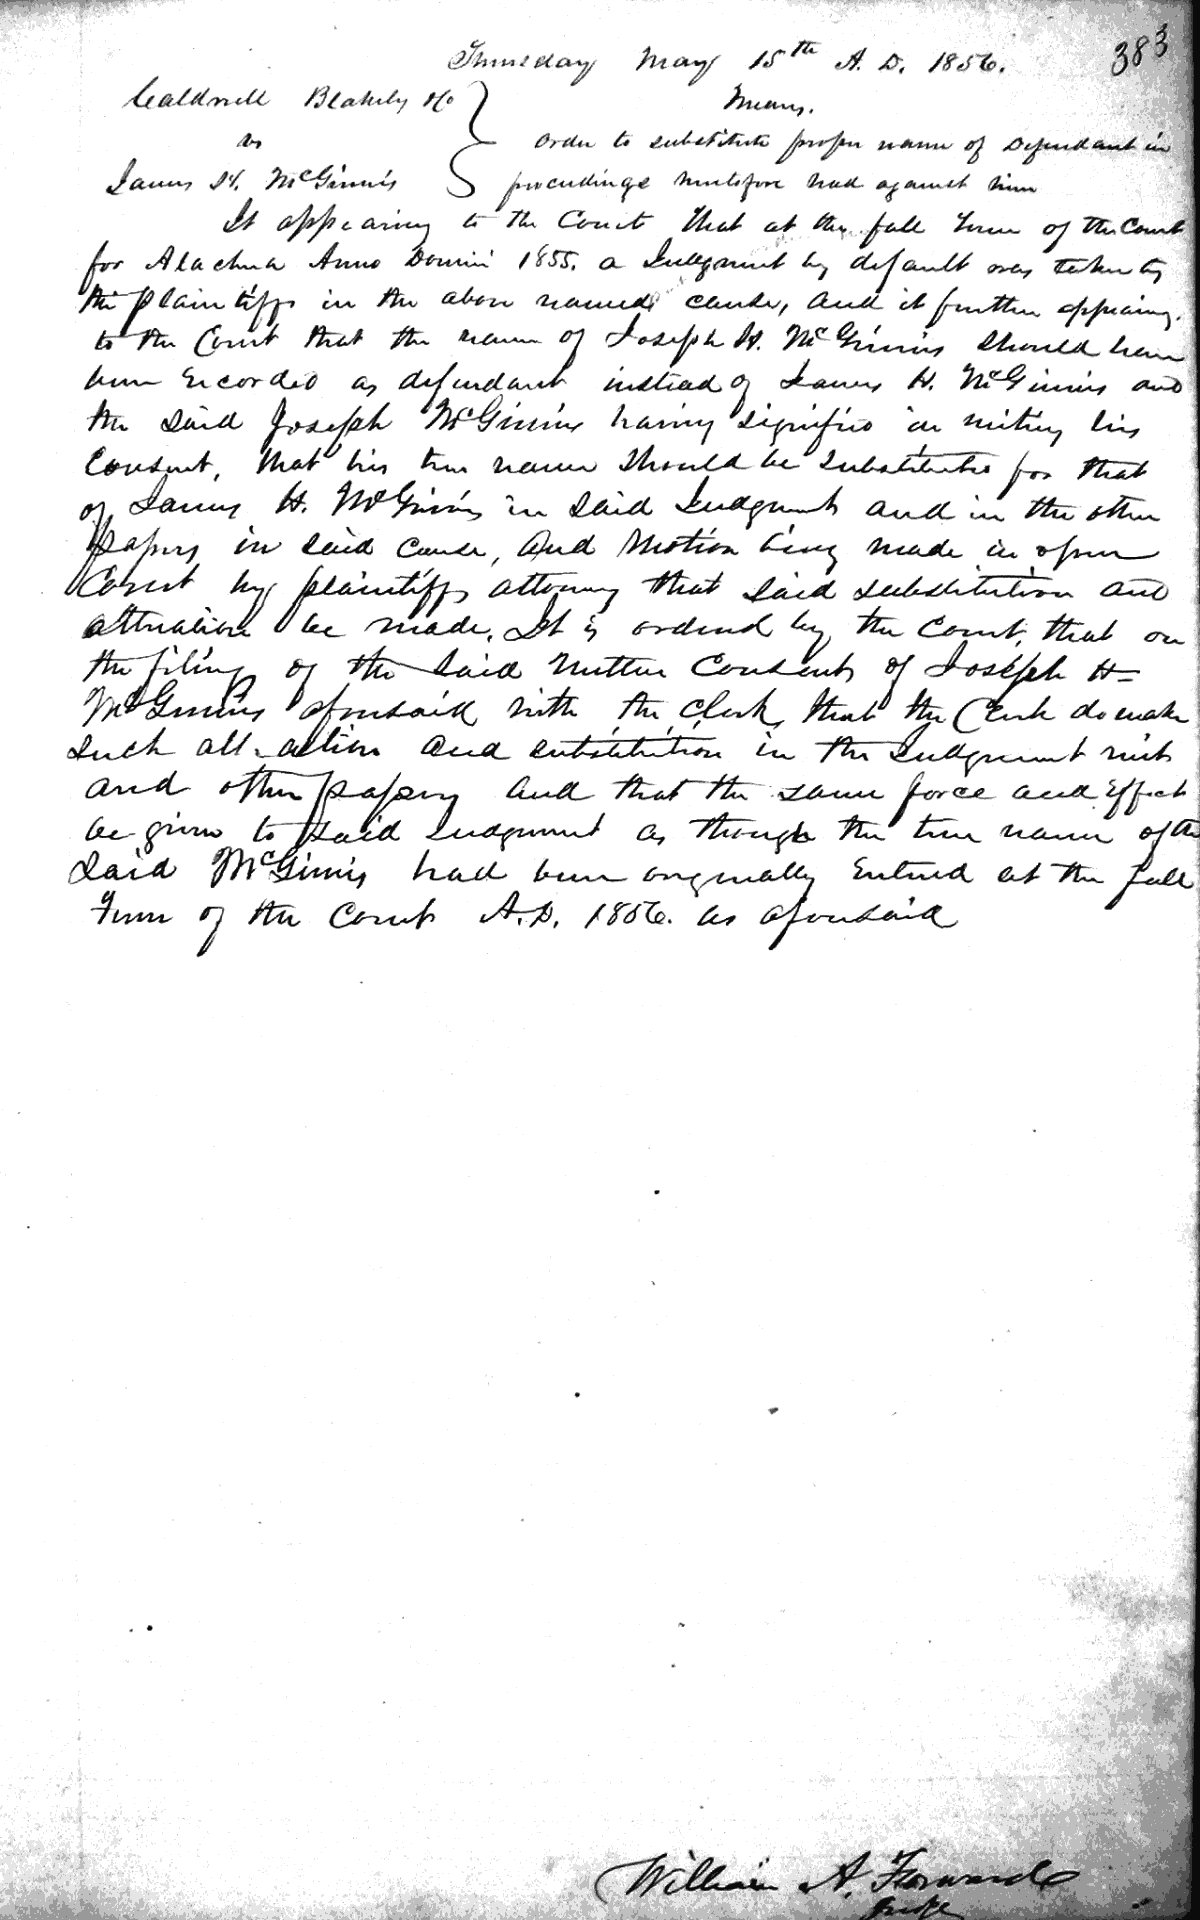 383
Thursday May 15th A. D. 1856.
Caldwell Blakely &c
vs
James H. McGinnis
Order to substitute proper name of Defendant in
proceedings heretofore had against him
It appearing to the Court that at the fall Term of the Court
for Alachua Anno Domini 1855. a Judgment by default was taken by
the plaintiffs in the above named cause, and it further appearing.
to the Court that the name of Joseph H. McGinnis should have
been Recorded as defendant instead of James H. McGinnis and
the said Joseph McGinnis having signified in writing his
Consent, that his true name should be substituted for that
of James H. McGinnis in said Judgment and in the other
papers in said cause, And Motion being made in open
Court by plaintiffs attorney that said substitution and
alteration be made. It is ordered by the Court, that on
the filing of the said written Consent of Joseph H
McGinnis aforesaid with the Clerk, that the Clerk do make
such alteration and substitution in the Judgment
and other papers and that the same force and Effect
be given to said Judgment as though the true name of the
said McGinnis had been originally Entered at the fall
Term of the Court A.D. 1856. as aforesaid
William A. Forward
Judge